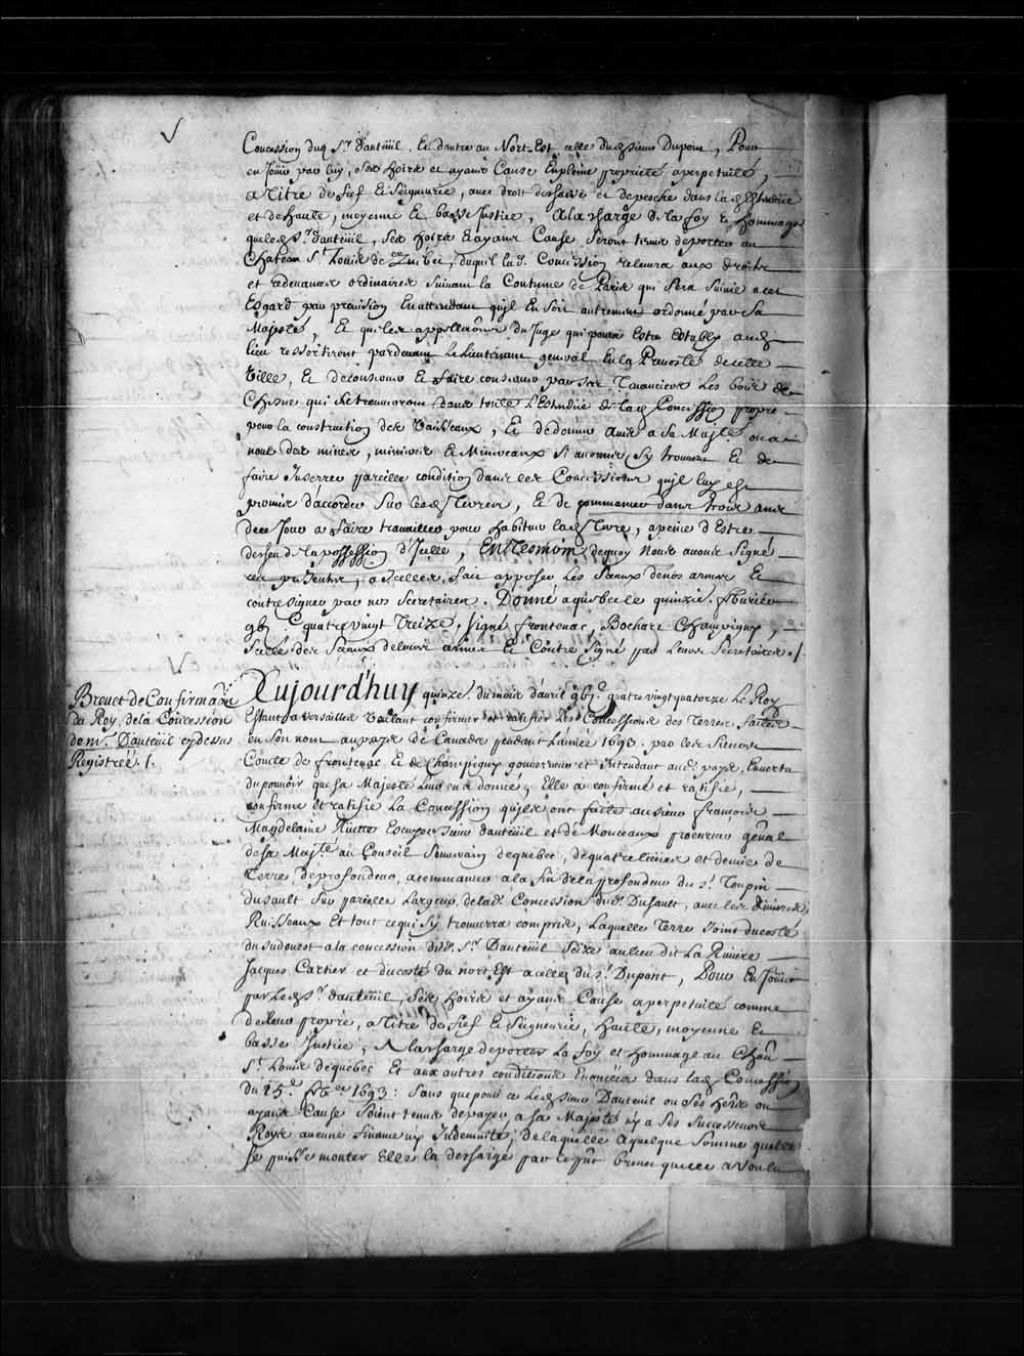 Concession dud. Sr. d'auteüil, Et d'autre au Nort-Est celle dud. sieur Dupont, Pour
en Joüir par luy, ses hoirs et ayans Cause En pleine proprieté a perpetuité,
a Titre de fief Et Seigneurie, avec droit de chasse et de pesche dans lad. Estendüe
et de haute, moyenne Et basse Justice, A la charge de la foy Et hommage
que led. Sr. d'auteüil, ses hoirs Et ayans Cause seront tenus de porter au
Chateau St. Louis de Quebec, duquel lad. Concession relevera aux droits
et redevances ordinaires suivant la Coutume de Paris qui sera suivie a cet
Esgard par prevision En attendant qu'jl En soit autrement ordonné par Sa
Majesté, Et que les appellaõns du Juge qui poura Estre Estably aud.
lieu ressortiront pardevant le Lieutenant general En la Prevosté de cette
Ville, Et de conserver Et faire conserver par ses Tenanciers les bois de
Chesne qui se trouveront dans toute l'Estendüe de lad. Concession propres
pour la construction des Vaisseaux, Et de donner avis a Sa Majté ou a
nous des mines, minieres Et Mineraux si aucunes s'y trouvent Et de
faire Inserer pareille condition dans les Concessions qu'jl luy est
permis d'accorder sur lesd. Terres, Et de commencer dans trois ans
de ce Jour a faire travailler pour habituer lad. Terre, a peine d'Estre
descheu de la possession d'Icelle, En Tesmoin dequoy Nous avons Signé
ces presentes, a Jcelles fait apposer les Sceaux de nos armes Et
contresigner par nos Secretaires. Donné a Quebec le quinze. fevrier
gbjC quatre vingt Treize. Signé frontenac, Bochart Champigny,
Scellé des Sceaux de leurs armes Et Contre Signé par Leurs Secretaires ./.
Brevet de Confirmaõn
du Roy, de la Concession
de mr. Dauteüil cy dessus
Registrée ./.
Aujourd'huy quinze. du mois d'avril gbjC. quatre vingt quatorze Le Roy
Estant a Versailles Voulant confirmer et ratifier Les Concessions des Terres faites
en Son nom au pays de Canada pendant l'année 1693. par les Sieurs
Comte de frontenac Et de Champigny gouverneur et Intendant aud. pays, En vertu
du pouvoir que sa Majesté leur en a donné, Elle a confirmé et ratifié,
confirme et ratifie La Concession qu'jls ont faite au sieur françois
Magdelaine Ruette Escuyer sieur d'auteüil et de Monceaux procureur gñal
de sa Majté. au Conseil Souverain de quebec, de quatre lieües et demie de
Terre de profondeur, a commencer a la fin de la profondeur du sr. Toupin
dusault sur pareille Largeur de lad. Concession dud. Dusault, avec les Rivieres
Ruisseaux Et tout ce qui s'y trouvera compris, Laquelle Terre Joint du costé
du sudouest a la concession dud. Sr. Dauteüil size au lieu dit La Riviere
Jacques Cartier et du costé du nort Est a celles du sr. Dupont, Pour En Joüir
par led. Sr. dauteüil, ses hoirs et ayans Cause a perpetuité comme
de leur propre, a Titre de fief Et Seigneurie, haute, moyenne Et
basse Justice, A la charge de porter la foy et hommage au Chãu
St. Louis de quebec Et aux autres conditions Enoncées dans lad. Concession
du 15e. feber 1693: Sans que pour ce led. sieur Dauteüil ou ses hoirs ou
ayans Cause soient tenus de payer a sa Majesté ny a Ses Successeurs
Roys aucune finance ny Indemnité, de laquelle a quelque Somme quelle
se puisse monter Elle la descharge par ce pñt brevet quelle a voulu